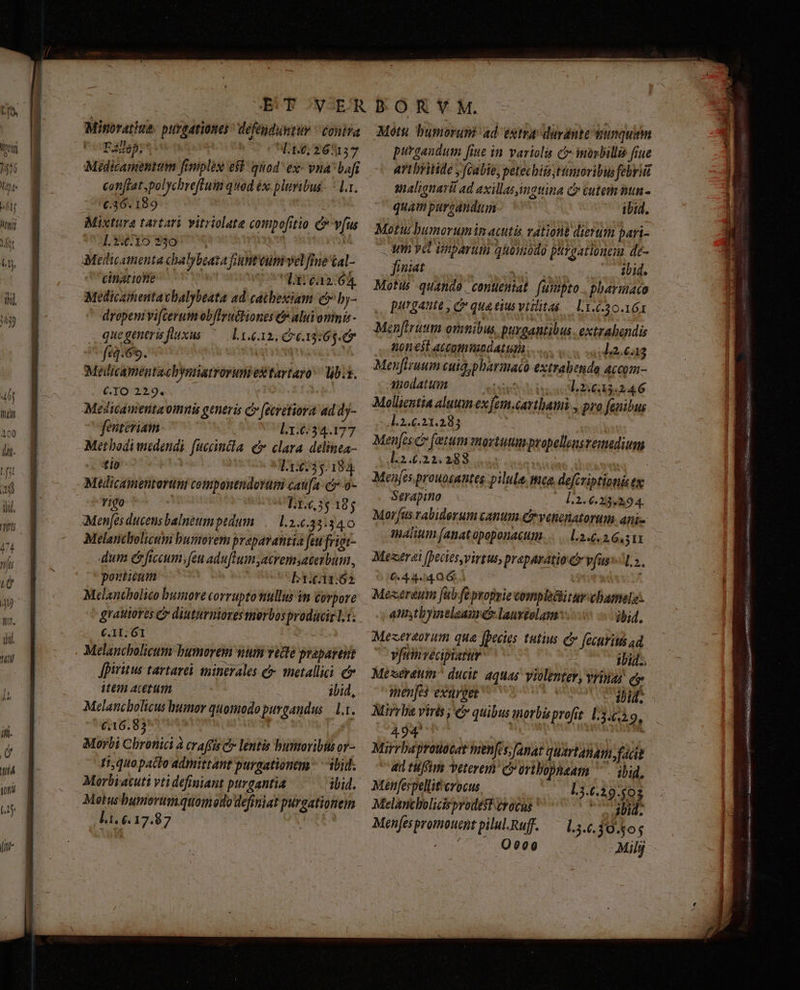 ET VERBORVM.
Minoratiuæ purgationes defenduntur contra
Fallop. l.1.c.26.137
Medicamentum simplex est quod ex vna basi
constat, polychrestum quod ex pluribus l.1.
c.36.189
Mixtura tartari vitriolata compositio & vsus
l.2.c.10 230
Medicamenta chalybeata fiunt cum vel sine cal-
cinatione l.1.c.12.64
Medicamenta chalybeata ad cachexiam & hy-
dropem viscerum obstructiones & alui omnis-
que generis fluxus l.1.c.12. & c.13.65. &
seq.69.
Medicamenta chymiatrorum ex tartaro lib.2.
c.10 229.
Medicamenta omnis generis & secretiora ad dy-
senteriam l.1.c.34.177
Methodi medendi succincta & clara delinea-
tio l.1.c.35.184
Medicamentorum componendorum causa & o-
rigo l.1.c.35 185
Menses ducens balneum pedum l.2.c.33.340
Melancholicum humorem præparantia seu frigi-
dum & siccum, seu adustum, acrem, acerbum,
ponticum l.1.c.11.62
Melancholico humore corrupto nullus in corpore
grauiores & diuturniores morbos producit l.1.
c.11.61
Melancholicum humorem num recte præparent
spiritus tartarei minerales & metallici &
item acetum ibid,
Melancholicus humor quomodo purgandus l.1.
c.16.83
Morbi Chronici à crassis & lentis humoribus or-
ti, quo pacto admittant purgationem ibid.
Morbi acuti vti definiant purgantia ibid.
Motus humorum quomodo definiat purgationem
l.1.c.17.87
Motu humorum ad extra durante nunquam
purgandum siue in variolis & morbillis siue
arthritide, scabie, petechiis, tumoribus febriū
malignarū ad axillas, inguina & cutem nun-
quam purgandum ibid.
Motus humorum in acutis ratione dierum pari-
um vel imparum quomodo purgationem de-
finiat ibid.
Motus quando conueniat sumpto pharmaco
purgante, & qua eius vtilitas l.1.c.30.161
Menstruum omnibus purgantibus extrahendis
non est accommodatum l.2.c.13
Menstruum cuiq; pharmaco extrahendo accom-
modatum l.2.c.13.246
Mollientia aluum ex sem. carthami, pro senibus
l.2.c.21.283
Menses & fœtum mortuum propellens remedium
l.2.c.22.288
Menses prouocantes pilulæ meæ descriptionis ex
Serapino l.2.c.23.294.
Morsus rabidorum canum & venenatorum ani-
malium sanat opoponacum l.2.c.26.311
Mezerei species, virtus, præparatio & vsus l.2.
c.44.406
Mezereum sub se proprie complectitur chamela-
am, thymelæam & laureolam ibid.
Mezereorum quæ species tutius & securius ad
vsum recipiatur ibid.
Mezereum ducit aquas violenter, vrinas &
menses exurget ibid.
Mirrha vires, & quibus morbis profit l.3.c.29,
494
Mirrha prouocat menses, sanat quartanam, facit
ad tussim veterem & orthopnœam ibid,
Menses pellit crocus l.3.c.29.503
Melancholicis prodest crocus ibid.
Menses promouent pilul. Ruff. l.3.c.30.505
Oooo Milij